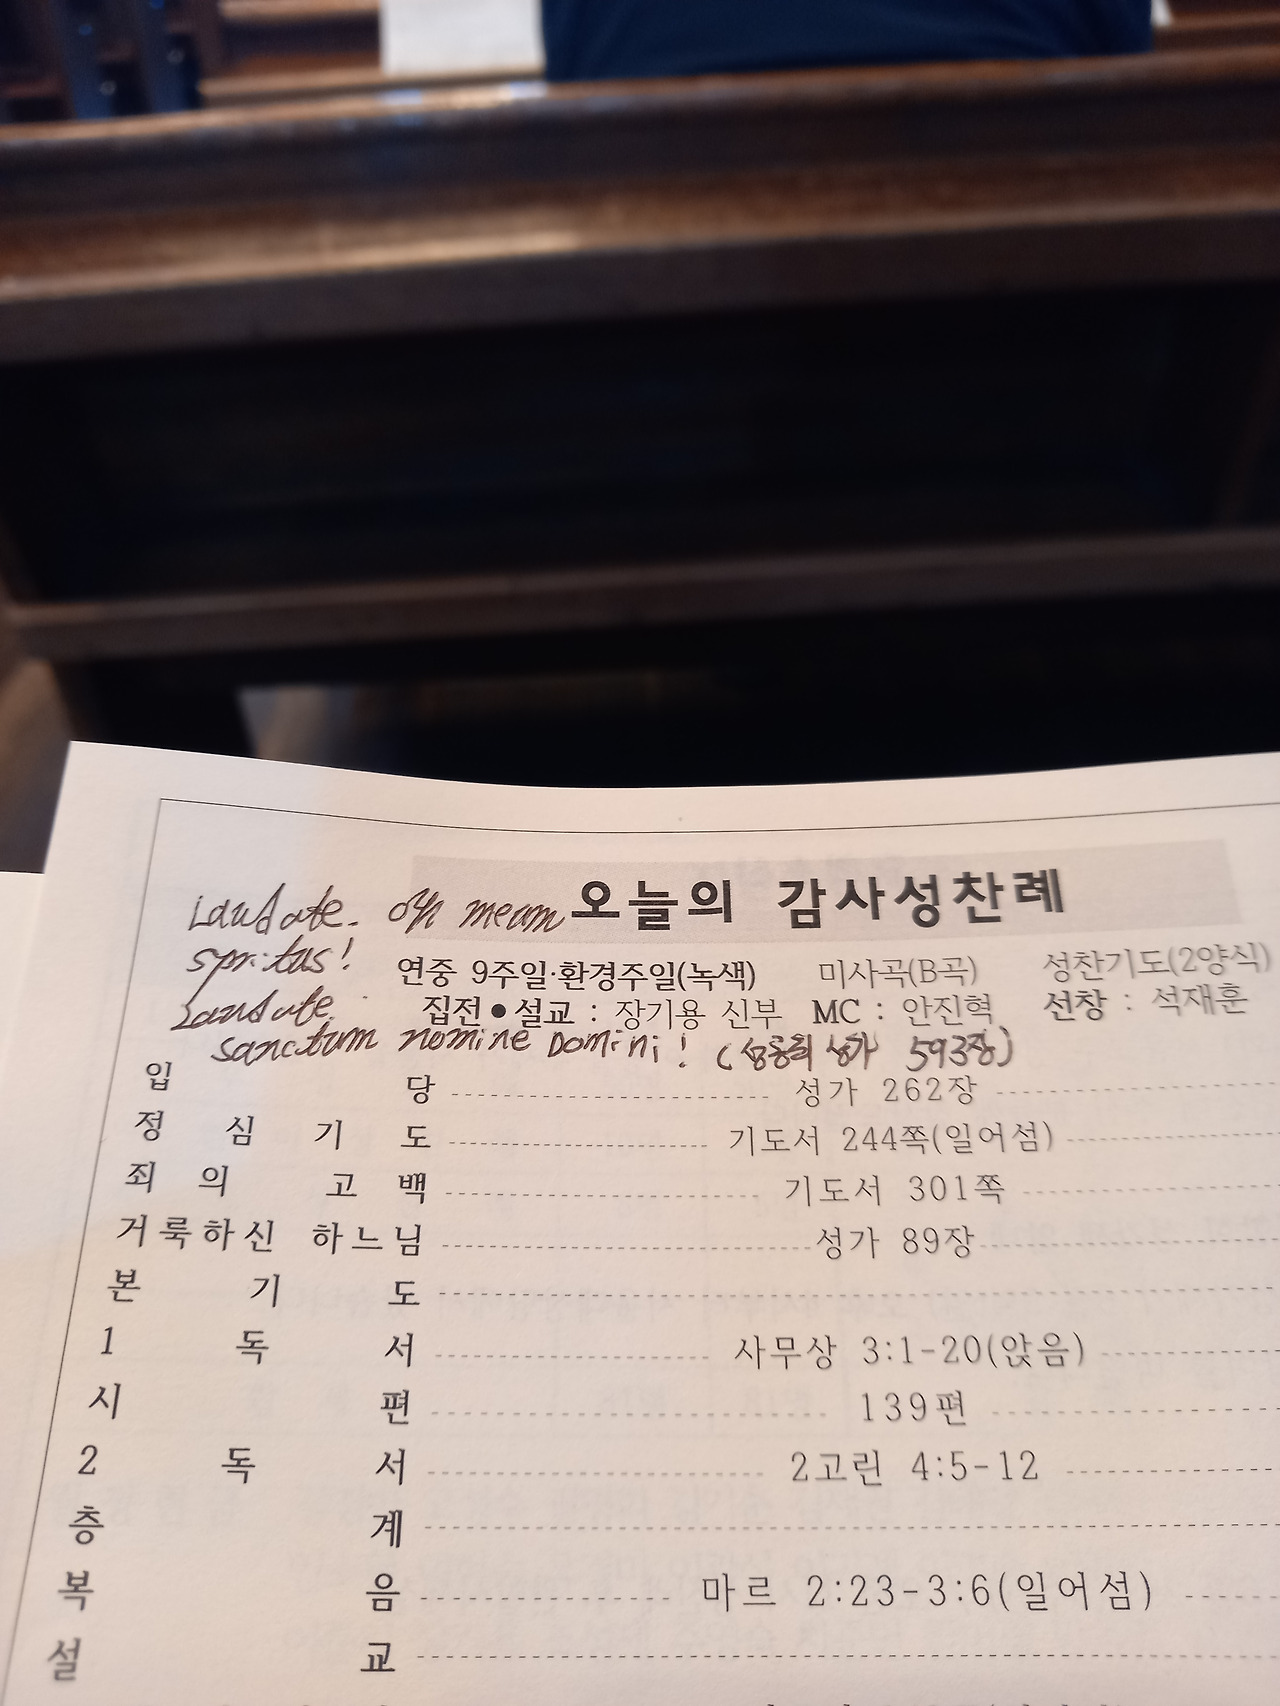 오늘의 감사성찬례
Laudate. oh meam
spritus!
연중 9주일·환경주일(녹색) 미사곡(B곡) 성찬기도(2양식)
Laudate
집전●설교 : 장기용 신부 MC : 안진혁 선창 : 석재훈
sanctum nomine Domini! (성공회 성가 593장)
입당 성가 262장
정심기도 기도서 244쪽(일어섬)
죄의 고백 기도서 301쪽
거룩하신 하느님 성가 89장
본기도
1독서 사무상 3:1-20(앉음)
시편 139편
2독서 2고린 4:5-12
층계
복음 마르 2:23-3:6(일어섬)
설교